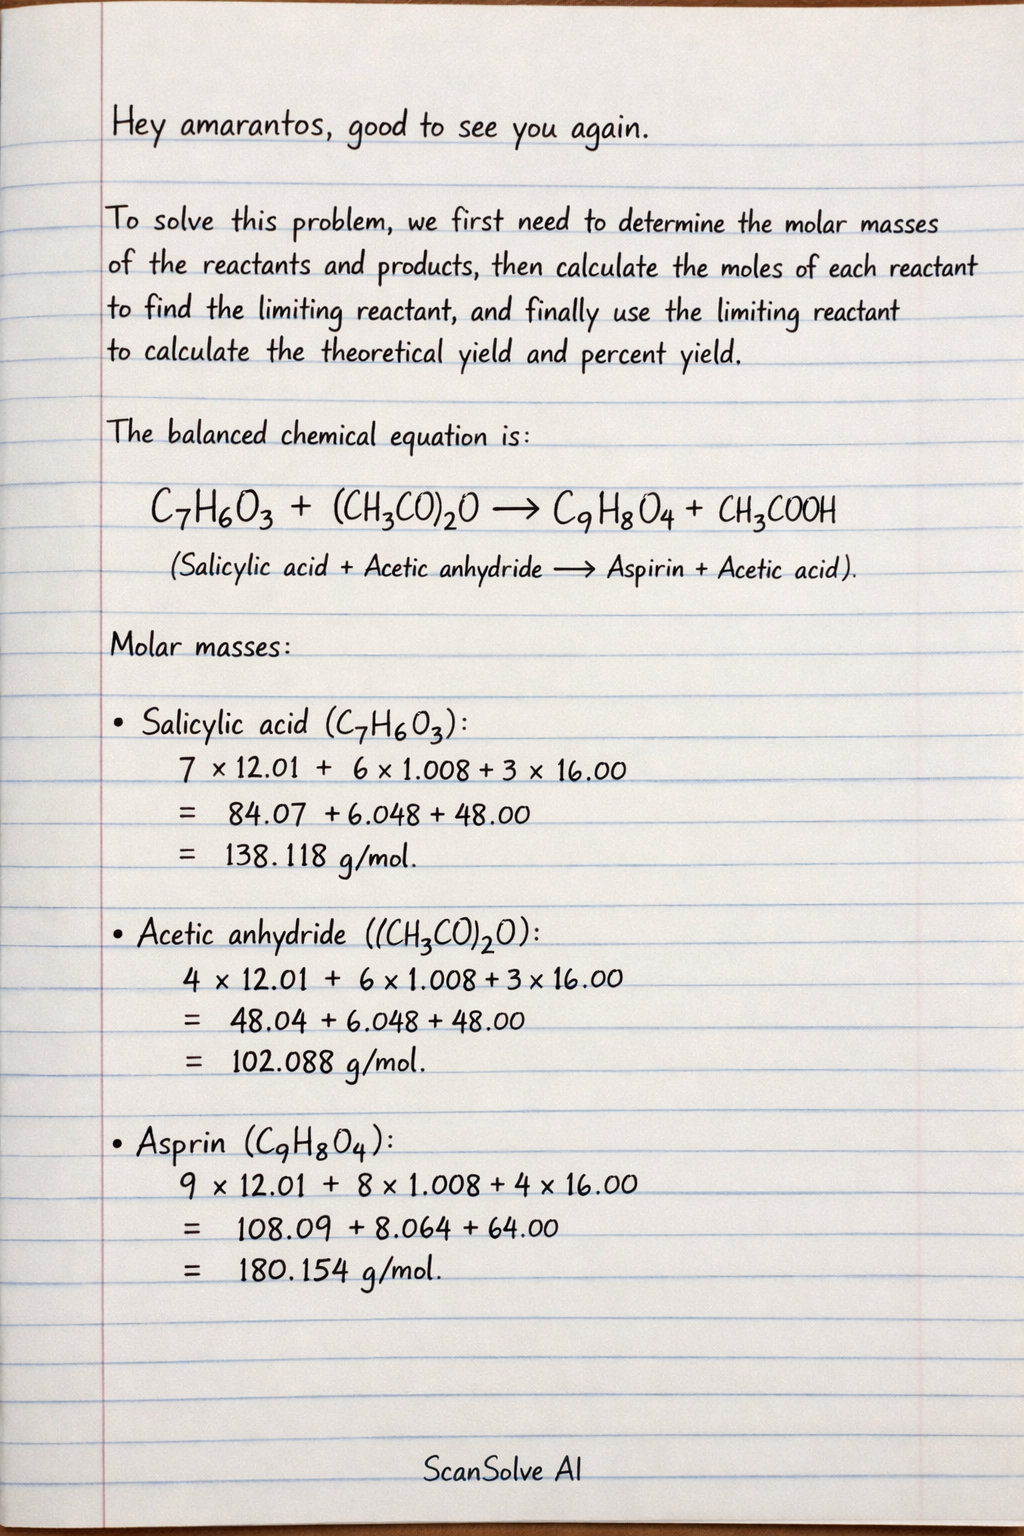 Hey amarantos, good to see you again.
To solve this problem, we first need to determine the molar masses
of the reactants and products, then calculate the moles of each reactant
to find the limiting reactant, and finally use the limiting reactant
to calculate the theoretical yield and percent yield.
The balanced chemical equation is:
C₇H₆O₃ + (CH₃CO)₂O ⟶ C₉H₈O₄ + CH₃COOH
(Salicylic acid + Acetic anhydride ⟶ Aspirin + Acetic acid).
Molar masses:
• Salicylic acid (C₇H₆O₃):
7 × 12.01 + 6 × 1.008 + 3 × 16.00
= 84.07 + 6.048 + 48.00
= 138.118 g/mol.
• Acetic anhydride ((CH₃CO)₂O):
4 × 12.01 + 6 × 1.008 + 3 × 16.00
= 48.04 + 6.048 + 48.00
= 102.088 g/mol.
• Asprin (C₉H₈O₄):
9 × 12.01 + 8 × 1.008 + 4 × 16.00
= 108.09 + 8.064 + 64.00
= 180.154 g/mol.
ScanSolve AI